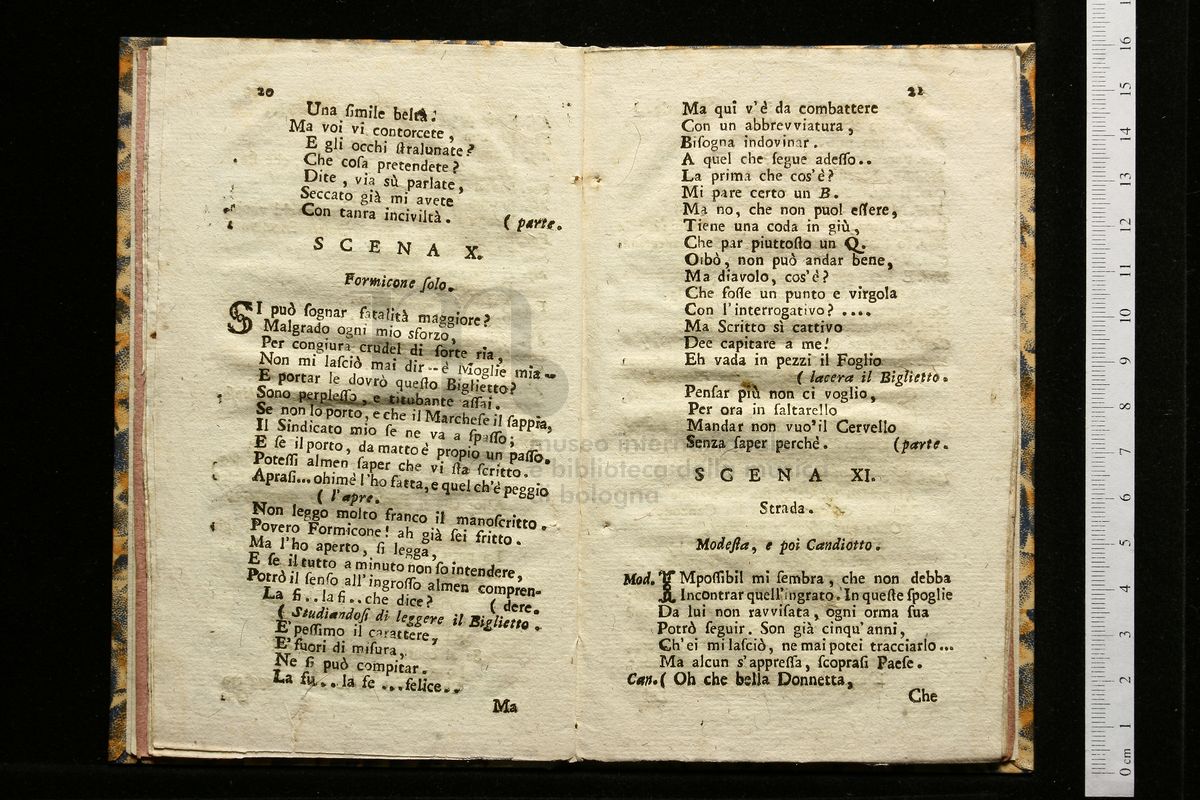 20
Una ſimile beltà.
Ma voi vi contorcete,
E gli occhi ſtralunate?
Che coſa pretendete?
Dite, via sù parlate,
Seccato già mi avete
Con tanra inciviltà. (parte.
SCENA X.
Formicone ſolo.
SI può ſognar fatalità maggiore?
Malgrado ogni mio sforzo,
Per congiura crudel di ſorte ria,
Non mi laſciò mai dir -- è Moglie mia --
E portar le dovrò queſto Biglietto?
Sono perpleſſo, e titubante aſſai.
Se non lo porto, e che il Marcheſe il ſappia,
Il Sindicato mio ſe ne va a ſpaſſo;
E ſe il porto, da matto è propio un paſſo.
Poteſſi almen ſaper che vi ſta ſcritto.
Apraſi... ohimè l'ho fatta, e quel ch'è peggio
(l'apre.
Non leggo molto franco il manoſcritto.
Povero Formicone! ah già ſei fritto.
Ma l'ho aperto, ſi legga,
E ſe il tutto a minuto non ſo intendere,
Potrò il ſenſo all'ingroſſo almen compren-
La ſi.. la ſi.. che dice? (dere.
(Studiandoſi di leggere il Biglietto.
E' peſſimo il carattere,
E' fuori di miſura,
Ne ſi può compitar.
La fu... la fe ...felice..
Ma
21
Ma quì v'è da combattere
Con un abbrevviatura,
Biſogna indovinar.
A quel che ſegue adeſſo..
La prima che cos'è?
Mi pare certo un B.
Ma no, che non puol eſſere,
Tiene una coda in giù,
Che par piuttoſto un Q.
Oibò, non può andar bene,
Ma diavolo, cos'è?
Che foſſe un punto e virgola
Con l'interrogativo? ....
Ma Scritto sì cattivo
Dee capitare a me!
Eh vada in pezzi il Foglio
(lacera il Biglietto.
Penſar più non ci voglio,
Per ora in ſaltarello
Mandar non vuo' il Cervello
Senza ſaper perchè. (parte.
SCENA XI.
Strada.
Modeſta, e poi Candiotto.
Mod. IMpoſſibil mi ſembra, che non debba
Incontrar quell'ingrato. In queſte ſpoglie
Da lui non ravviſata, ogni orma ſua
Potrò ſeguir. Son già cinqu'anni,
Ch'ei mi laſciò, ne mai potei tracciarlo...
Ma alcun s'appreſſa, ſcopraſi Paeſe.
Can. (Oh che bella Donnetta,
Che
museo internazionale
e biblioteca della musica
di bologna
0 cm 1 2 3 4 5 6 7 8 9 10 11 12 13 14 15 16